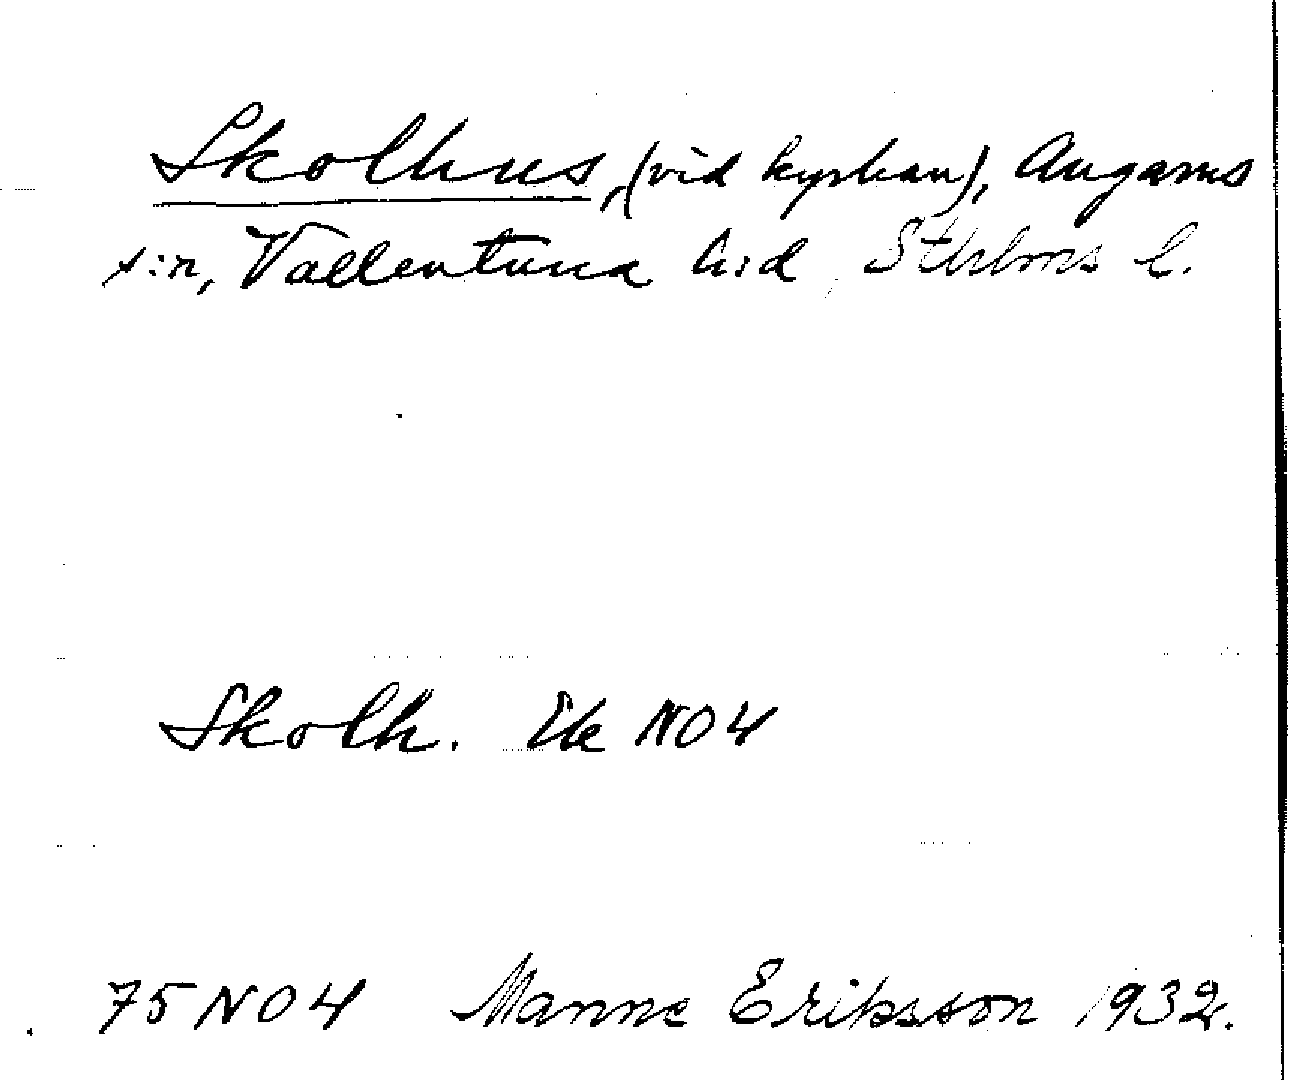 Skolhus, (vid kyrkan), Angarns
s:n, Vallentuna h:d, Sthlms l.
Skolh. Ek NO4
75 NO4 Manne Eriksson 1932.